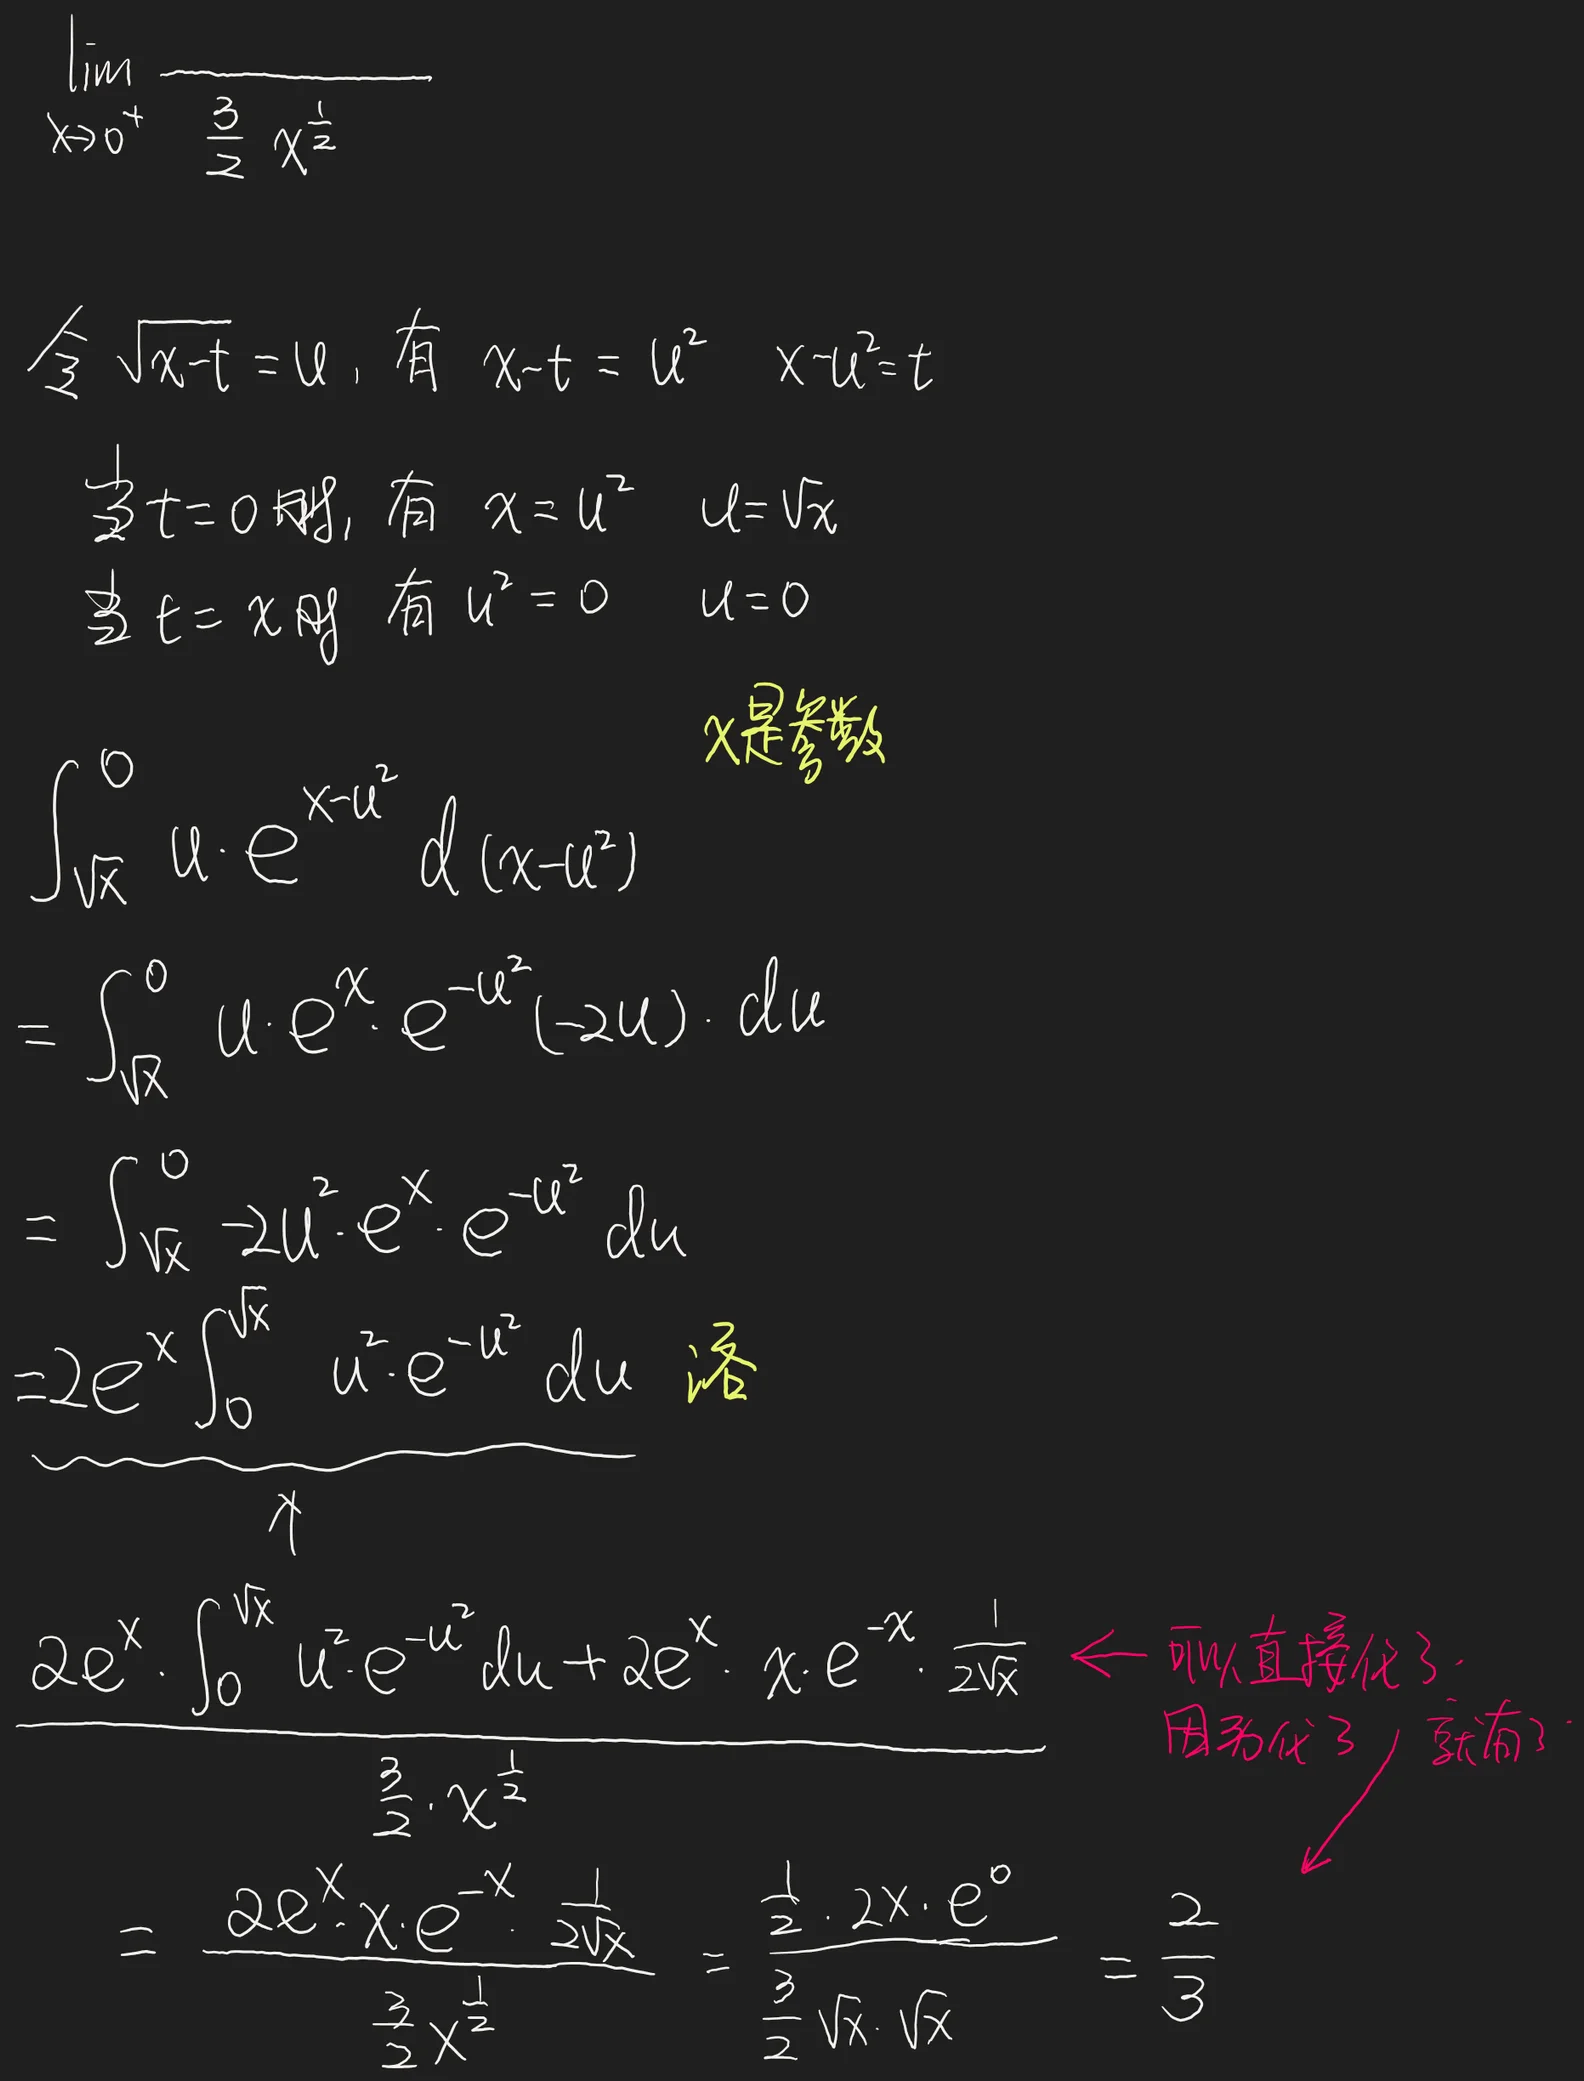 lim ———
x→0⁺ 3/2 x^(1/2)
令 √(x-t) = u, 有 x-t = u² x-u²=t
当 t=0时, 有 x=u² u=√x
当 t=x时 有 u²=0 u=0
x是参数
∫_(√x)^0 u·e^(x-u²) d(x-u²)
= ∫_(√x)^0 u·e^x·e^(-u²)(-2u)·du
= ∫_(√x)^0 -2u²·e^x·e^(-u²) du
=2e^x ∫_0^(√x) u²·e^(-u²) du 洛
2e^x·∫_0^(√x) u²·e^(-u²) du + 2e^x·x·e^(-x)·1/(2√x) ← 可以直接代了.
因为代了 就有了
3/2·x^(1/2)
= (2e^x·x·e^(-x)·1/(2√x))/(3/2 x^(1/2)) = (1/2·2x·e^0)/(3/2 √x·√x) = 2/3